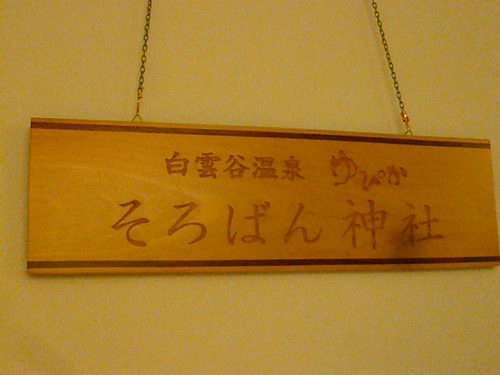 白雲谷温泉 ゆぴか
そろばん神社